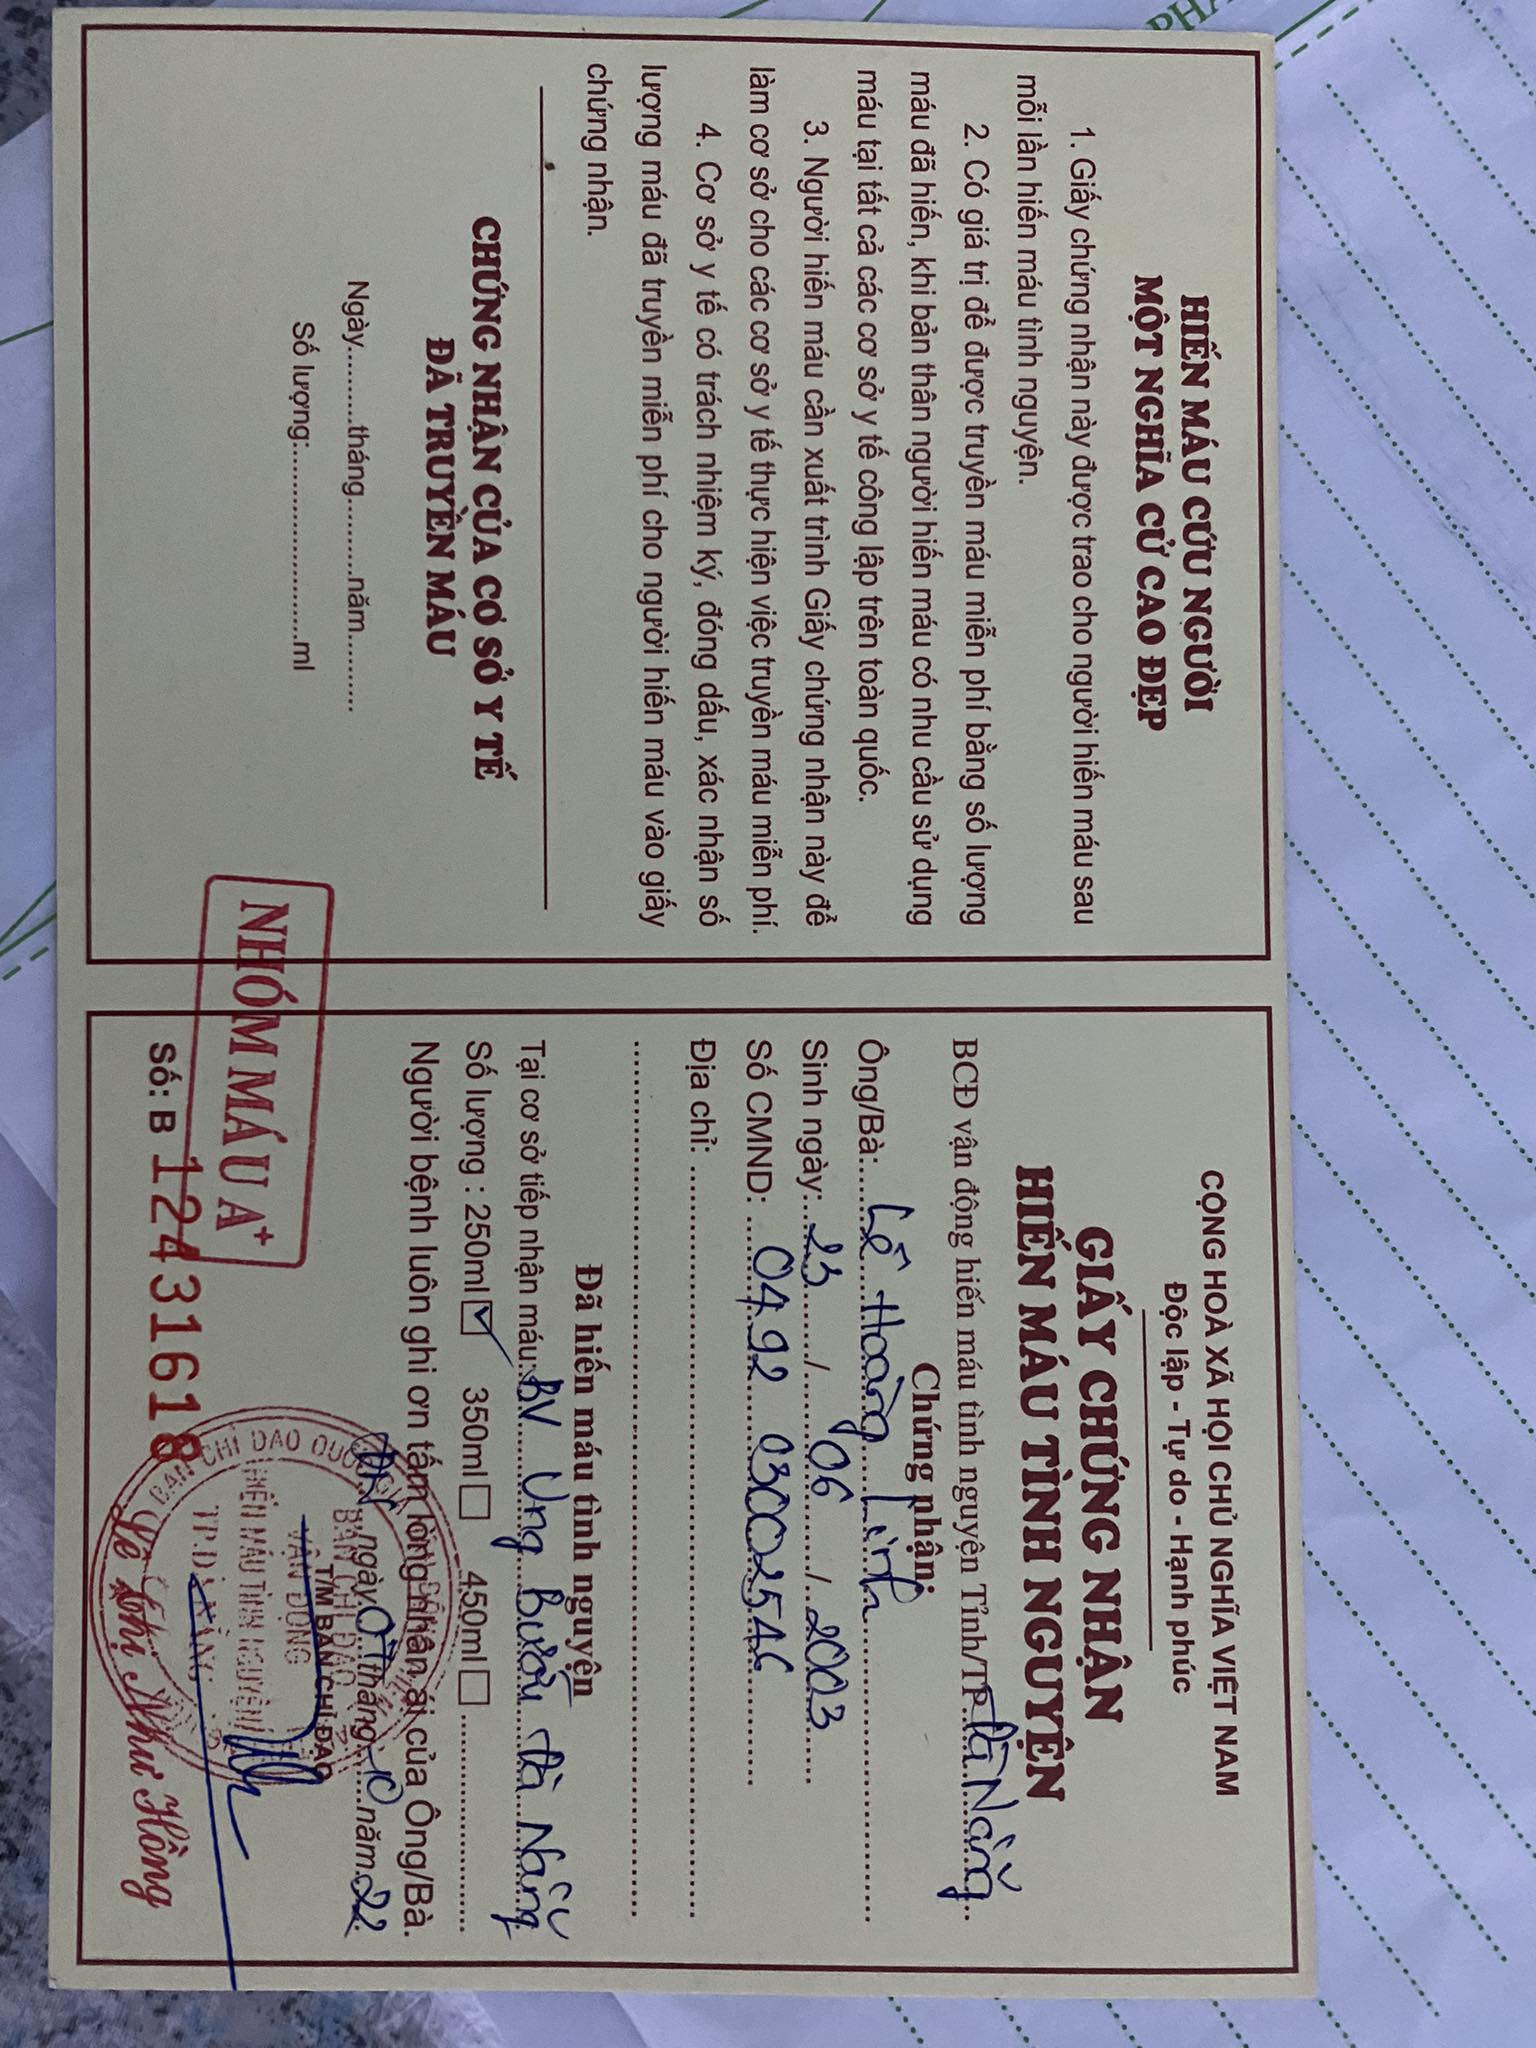 HIẾN MÁU CỨU NGƯỜI
MỘT NGHĨA CỬ CAO ĐẸP
1. Giấy chứng nhận này được trao cho người hiến máu sau
mỗi lần hiến máu tình nguyện.
2. Có giá trị để được truyền máu miễn phí bằng số lượng
máu đã hiến, khi bản thân người hiến máu có nhu cầu sử dụng
máu tại tất cả các cơ sở y tế công lập trên toàn quốc.
3. Người hiến máu cần xuất trình Giấy chứng nhận này để
làm cơ sở cho các cơ sở y tế thực hiện việc truyền máu miễn phí.
4. Cơ sở y tế có trách nhiệm ký, đóng dấu, xác nhận số
lượng máu đã truyền miễn phí cho người hiến máu vào giấy
chứng nhận.
CHỨNG NHẬN CỦA CƠ SỞ Y TẾ
ĐÃ TRUYỀN MÁU
Ngày..........tháng..........năm..........
Số lượng:........................ml
NHÓM MÁU A+
CỘNG HOÀ XÃ HỘI CHỦ NGHĨA VIỆT NAM
Độc lập - Tự do - Hạnh phúc
GIẤY CHỨNG NHẬN
HIẾN MÁU TÌNH NGUYỆN
BCĐ vận động hiến máu tình nguyện Tỉnh/TP Đà Nẵng
Chứng nhận:
Ông/Bà: Lê Hoàng Linh
Sinh ngày: 23 / 06 / 2003
Số CMND: 0492 03002546
Địa chỉ:
Đã hiến máu tình nguyện
Tại cơ sở tiếp nhận máu: BV Ung Bướu Đà Nẵng
Số lượng : 250ml ☑ 350ml ☐ 450ml ☐
Người bệnh luôn ghi ơn tấm lòng nhân ái của Ông/Bà.
ĐN ngày 07 tháng 10 năm 22
T/M BAN CHỈ ĐẠO
BAN CHỈ ĐẠO
VẬN ĐỘNG
HIẾN MÁU TÌNH NGUYỆN
TP.ĐÀ NẴNG
Số: B 12431618
Lê Thị Như Hồng